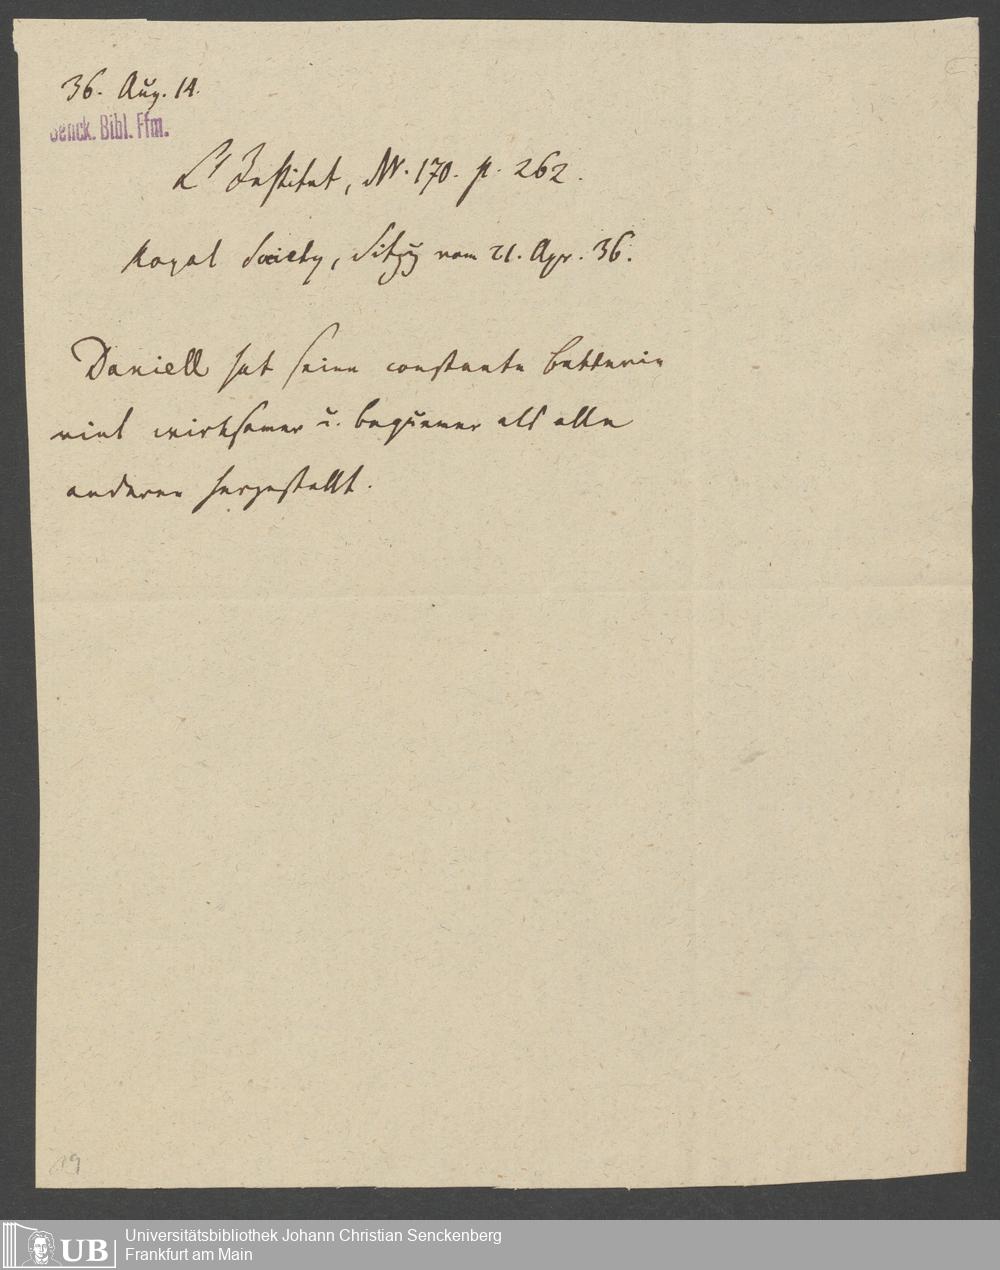 36. Aug. 14.
Senck. Bibl. Ffm.
L'Institut, Nr. 170. p. 262.
Royal Society, Sitzg vom 21. Apr. 36.
Daniell hat seine constante Batterie
viel wirksamer u. bequemer als alle
anderen hergestellt.
19
UB
Universitätsbibliothek Johann Christian Senckenberg
Frankfurt am Main